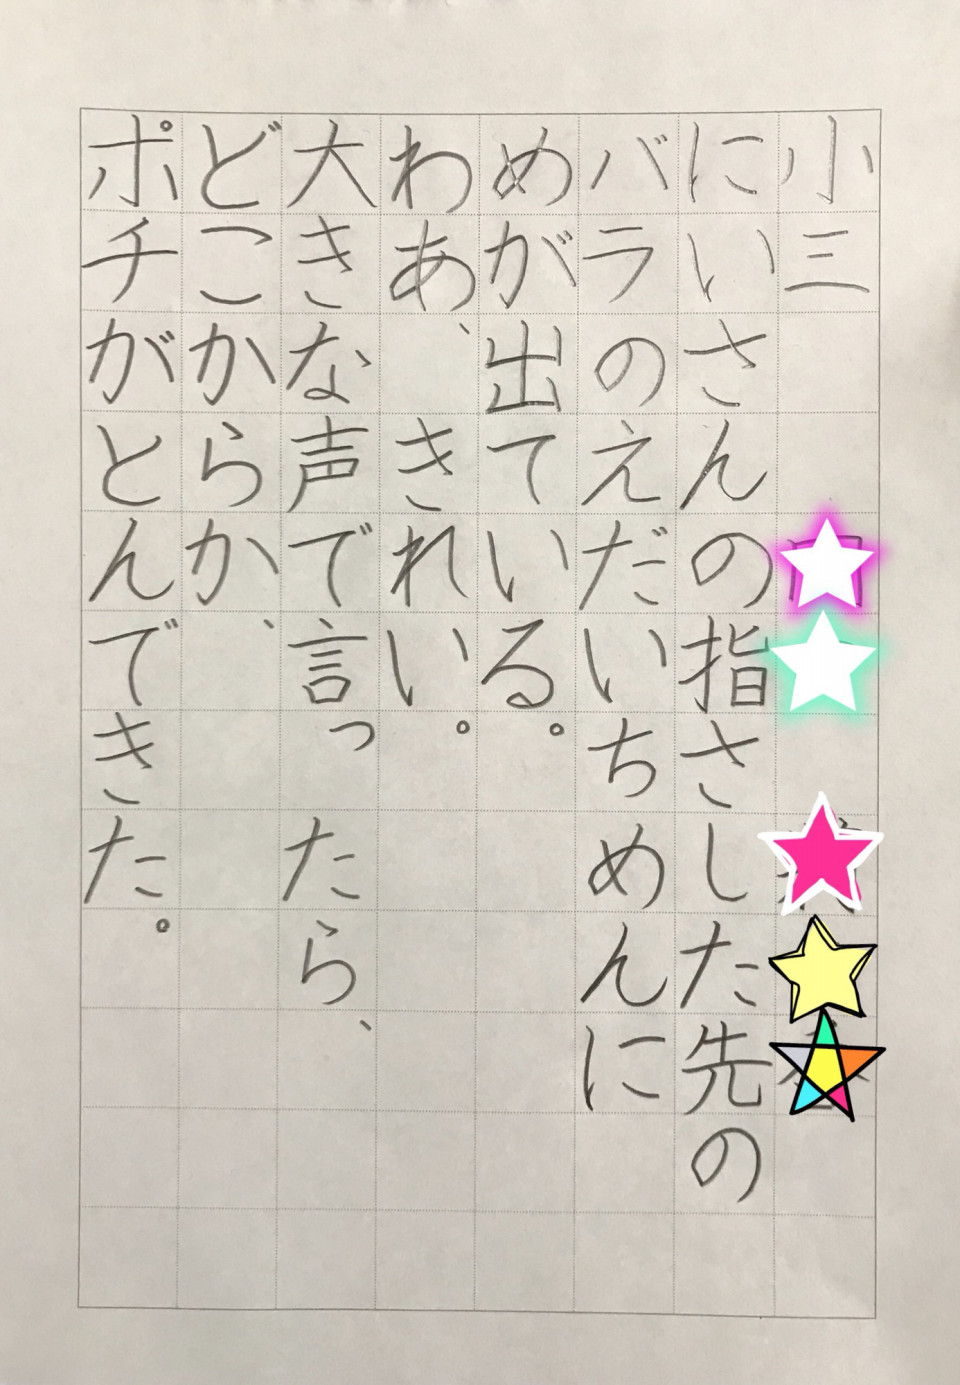 小三
にいさんの指さした先の
バラのえだいちめんに
めが出ている。
わあ、きれい。
大きな声で言ったら、
どこからか、
ポチがとんできた。